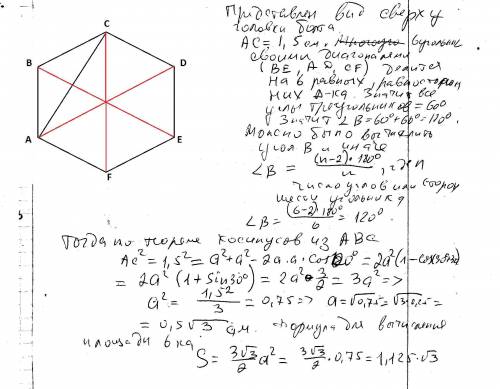 C
B
D
A
E
F
Представлен вид сверху
головки болта
AC = 1,5 см. 6 угольник
своими диагоналями
(BE, AD, CF) делится
на 6 равных, равносторон
них Δ-ка. Значит все
углы треугольников = 60°
Значит ∠B = 60° + 60° = 120°.
Можно было вычислить
угол B и иначе
∠B = (n-2)·180°/n, где n
число углов или сторон
шестиугольника
∠B = (6-2)·180°/6 = 120°.
Тогда по теореме косинусов из ABC
AC² = 1,5² = a² + a² - 2a·a·cos120° = 2a²(1 -
= 2a²(1 + Sin30°) = 2a²·3/2 = 3a² =>
a² = 1,5²/3 = 0,75 => a = √0,75 = √3·0,25 =
= 0,5√3 см. Формула для вычисления
площади 6 ка
S = 3√3/2 a² = 3√3/2 · 0,75 = 1,125·√3